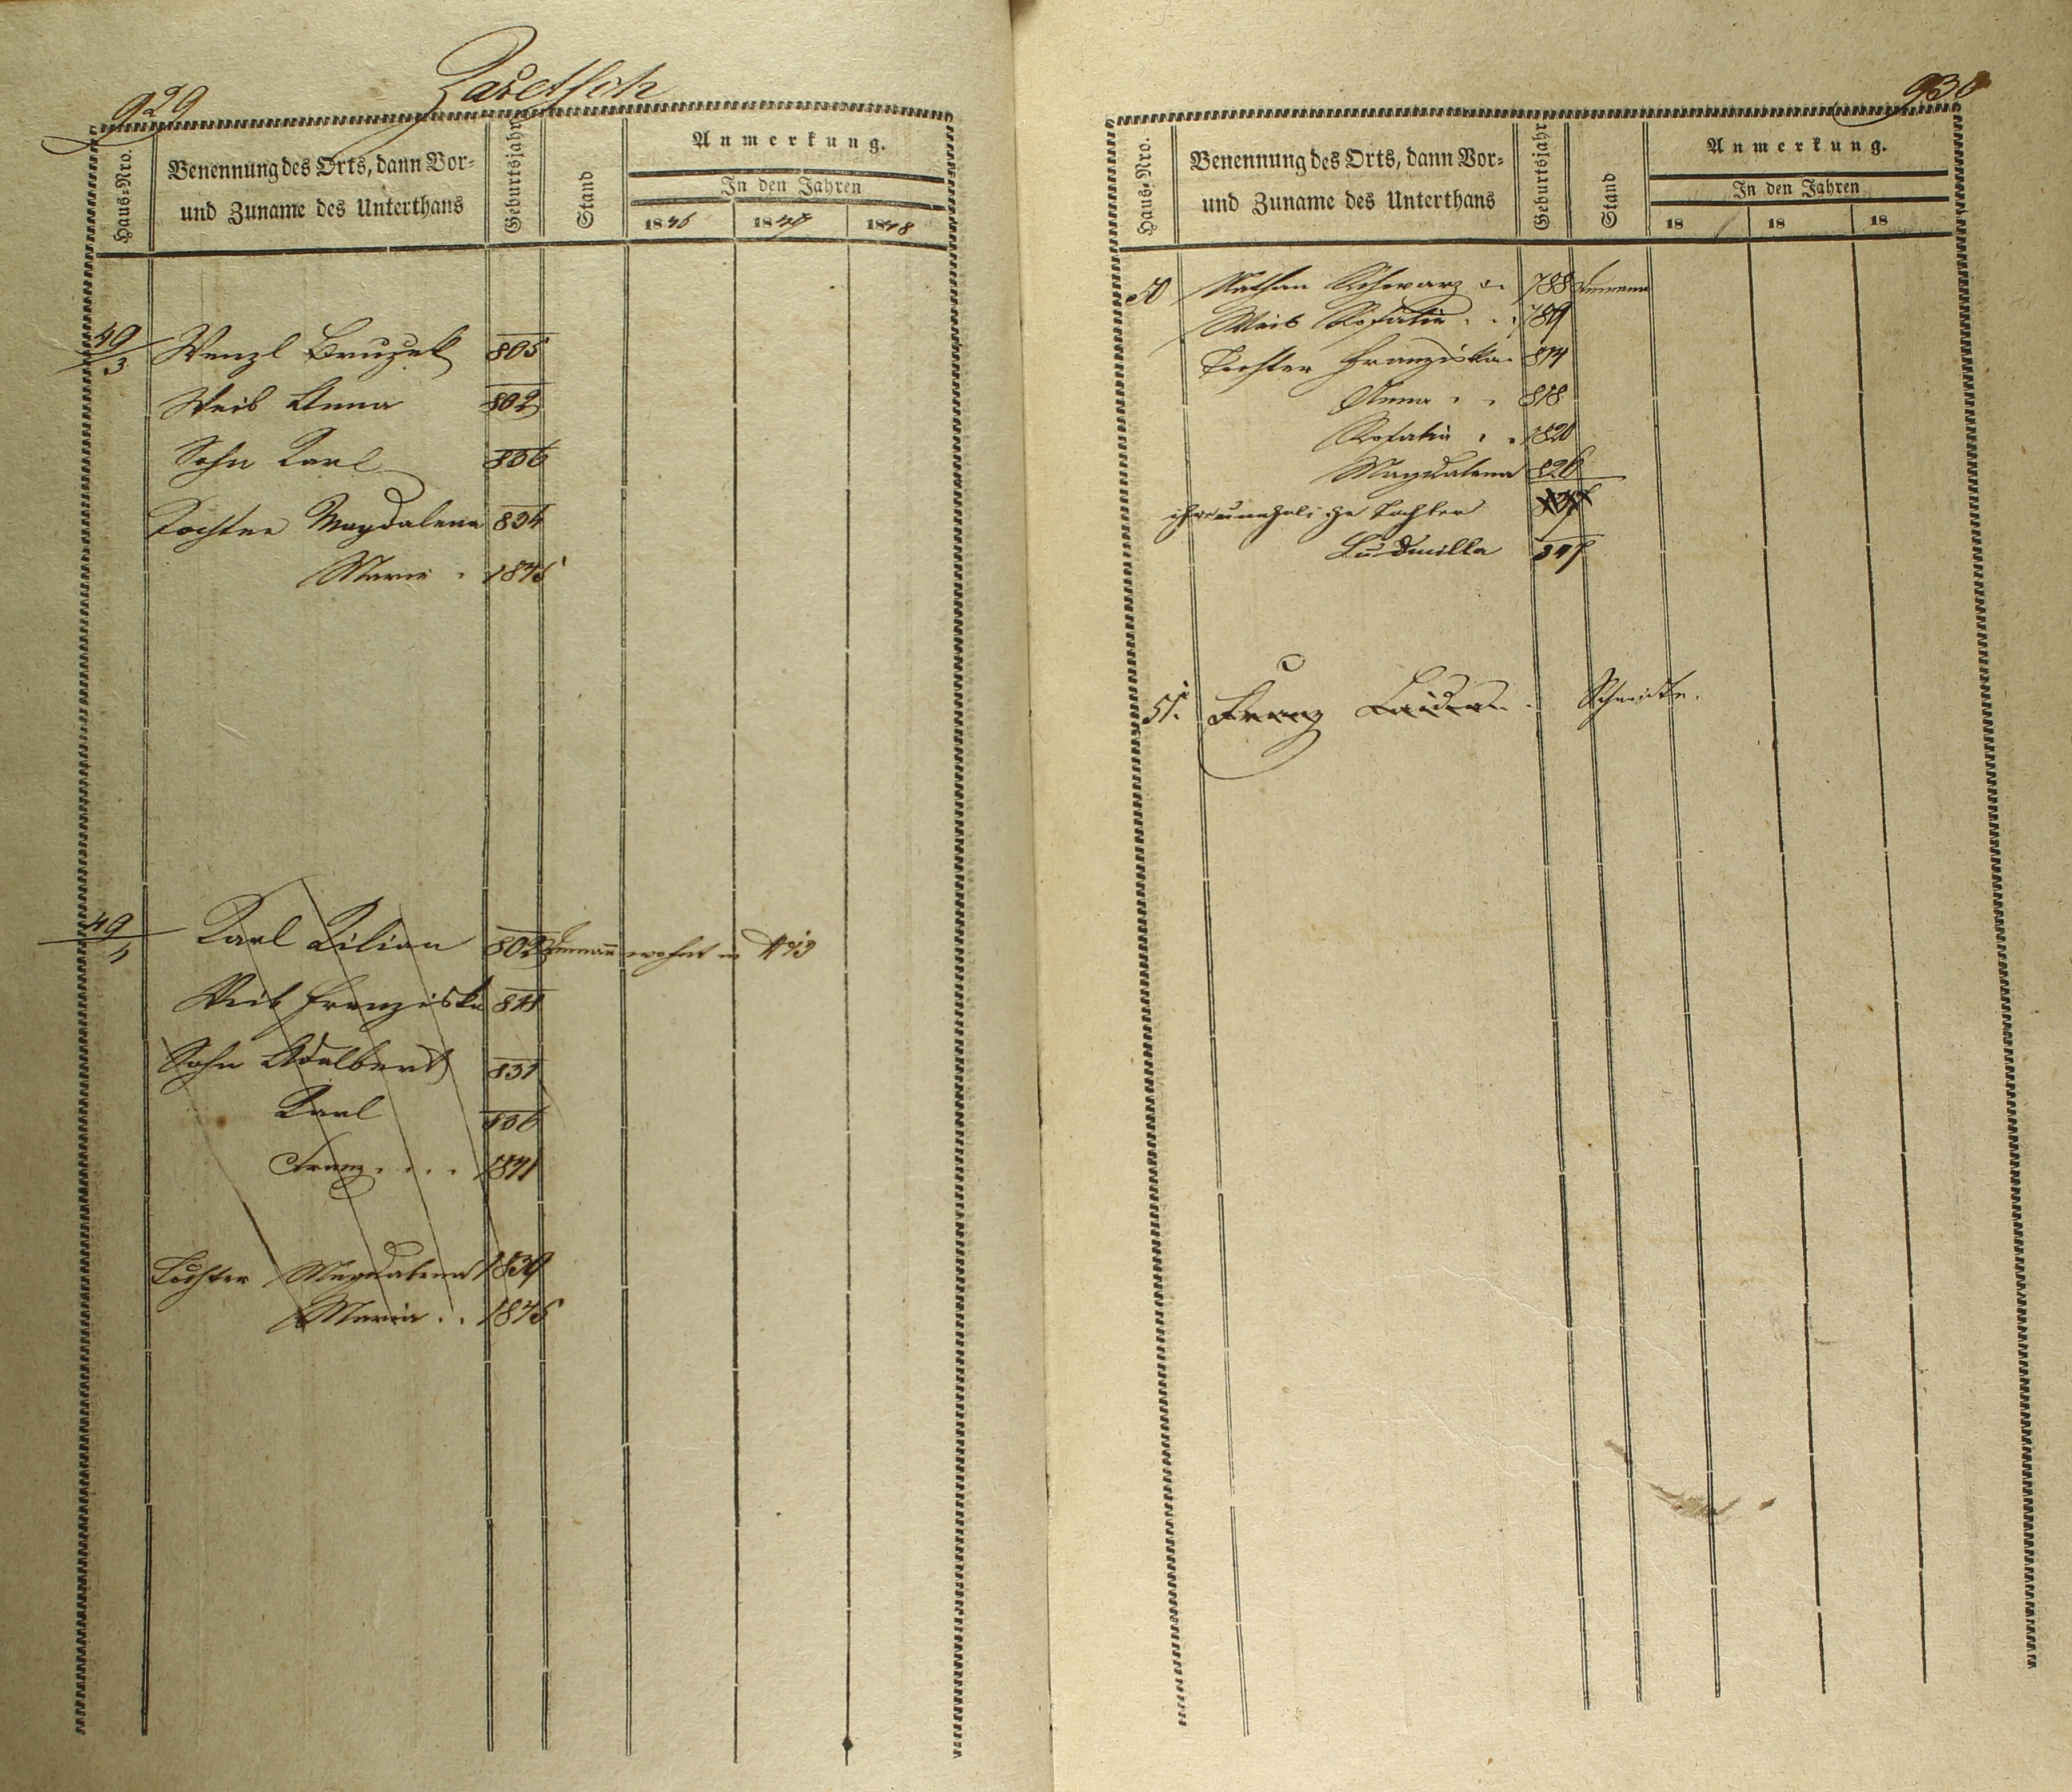 929
Zaretsch
Haus-Nro.
Benennung des Orts, dann Vor-
und Zuname des Unterthans
Geburtsjahr
Stand
Anmerkung.
In den Jahren
1846 1847 1848
49/3 Wenzl Bruzek 805
Weib Anna 802
Sohn Karl 836
Tochter Magdalena 834
Marie 1845
49/4 Karl Kilian 802 Inmann wohnt in N
Weib Franziska 811
Sohn Adalbert 831
Karl 836
Franz . . . 1841
Tochter Magdalena 1839
Maria . . 1845
930
Haus-Nro.
Benennung des Orts, dann Vor-
und Zuname des Unterthans
Geburtsjahr
Stand
Anmerkung.
In den Jahren
18 18 18
50 Nathan Schwarz 788 Inmann
Weib Rosalia . . 789
Tochter Franziska 814
Anna . . 818
Rosalia . . 1820
Magdalena 826
ihre uneheliche Tochter
Ludmilla 847
51. Franz